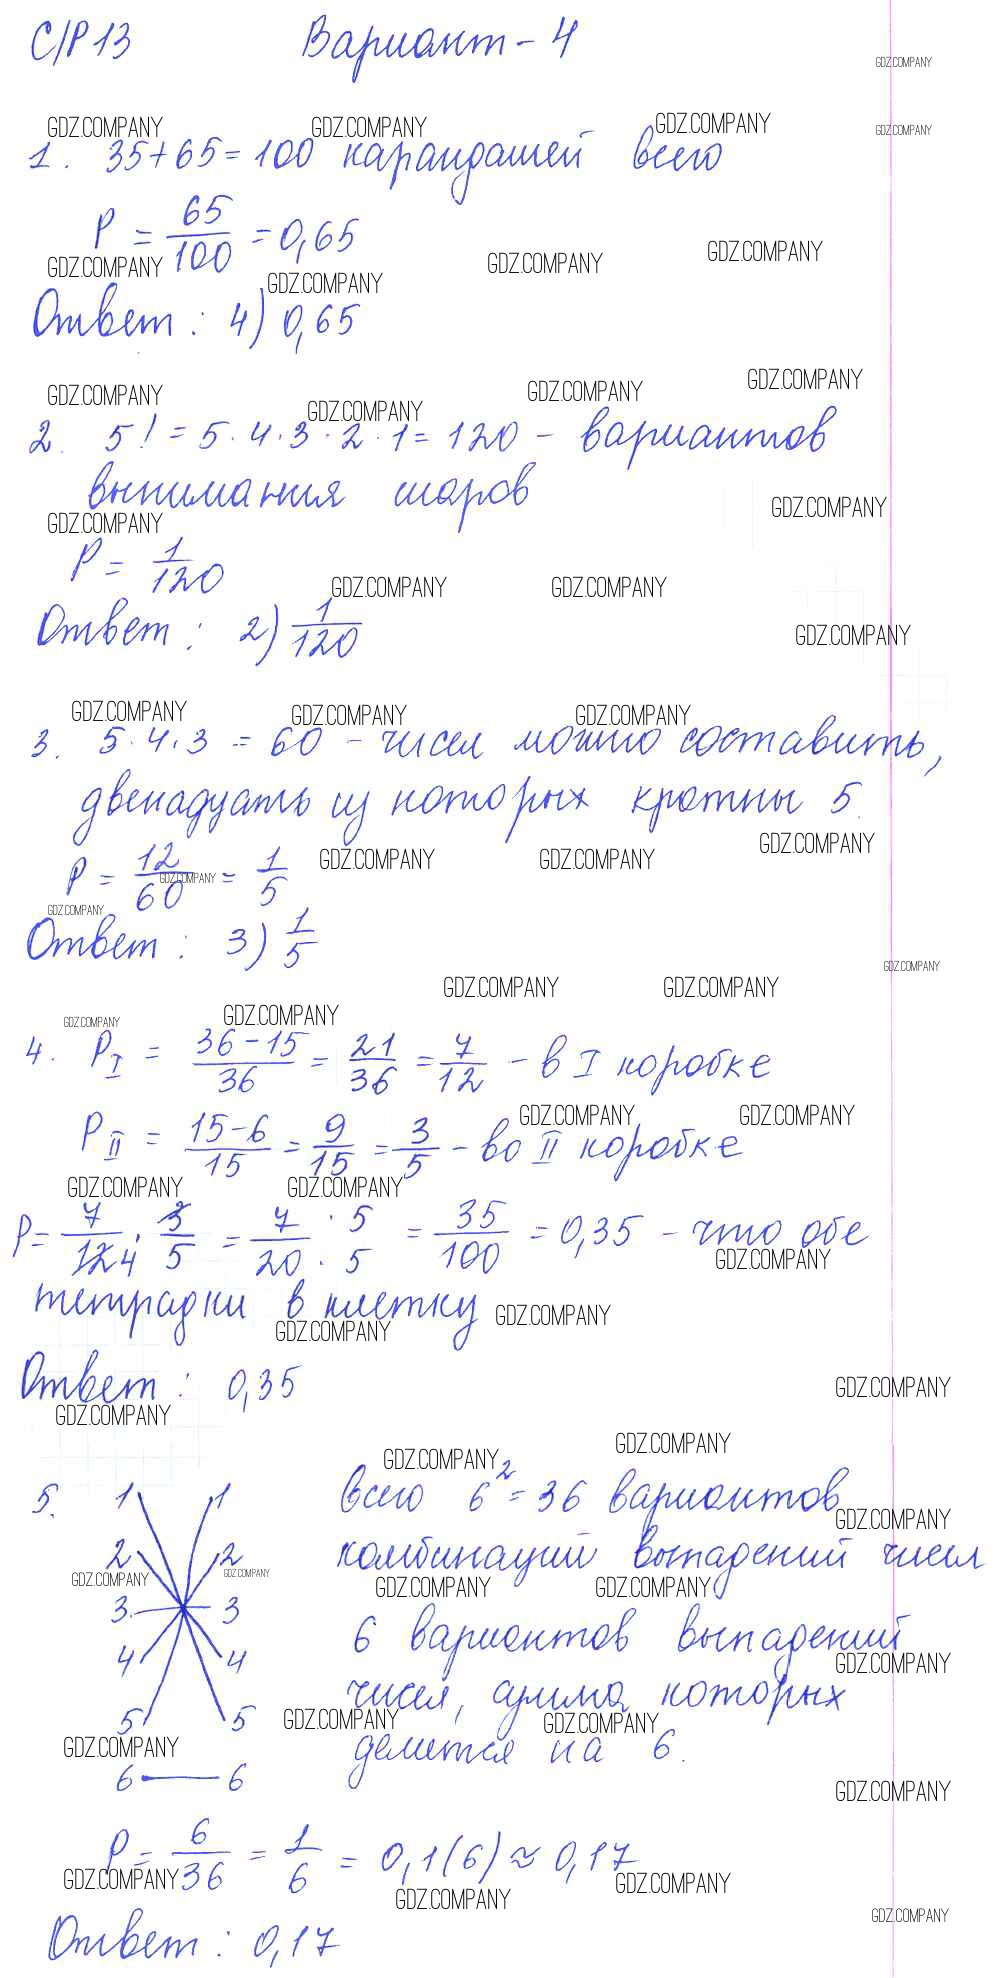 С/Р 13 Вариант - 4
1. 35+65=100 карандашей всего
P = 65/100 = 0,65
Ответ: 4) 0,65
2. 5! = 5·4·3·2·1= 120 - вариантов
вынимания шаров
P = 1/120
Ответ: 2) 1/120
3. 5·4·3 = 60 - чисел можно составить,
двенадцать из которых кратны 5.
P = 12/60 = 1/5
Ответ: 3) 1/5
4. P_I = (36-15)/36 = 21/36 = 7/12 - в I коробке
P_II = (15-6)/15 = 9/15 = 3/5 - во II коробке
P= 7/12 4 · 3/5 = 7/20 · 5/5 = 35/100 = 0,35 - что обе
тетрадки в клетку
Ответ: 0,35
5. 1 1
2 2
3 3
4 4
5 5
6 6
Всего 6² = 36 вариантов
комбинаций выпадений чисел
6 вариантов выпадений
чисел, сумма которых
делится на 6.
P = 6/36 = 1/6 = 0,1(6) ≈ 0,17
Ответ: 0,17
GDZ.COMPANY